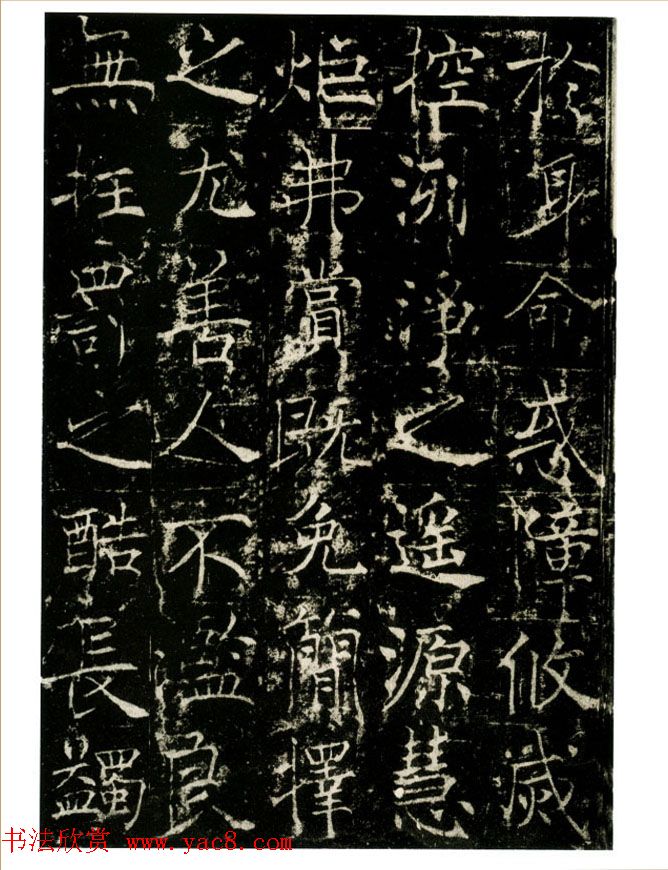 於身命惑障攸歲
控洌淨之遥源慧
炬弗當既免簡擇
之尤善人不濫良
無枉罰之酷長蠲
书法欣赏 www.yac8.com